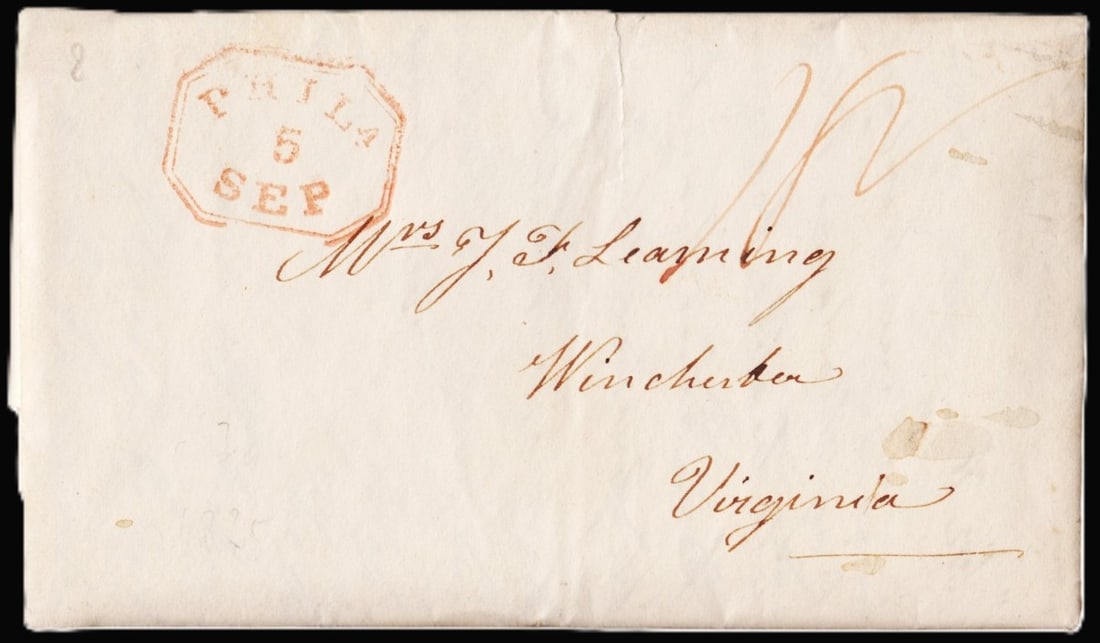 8
PHILA
5
SEP
Mrs J. F. Leaming
Winchester
Virginia
1835